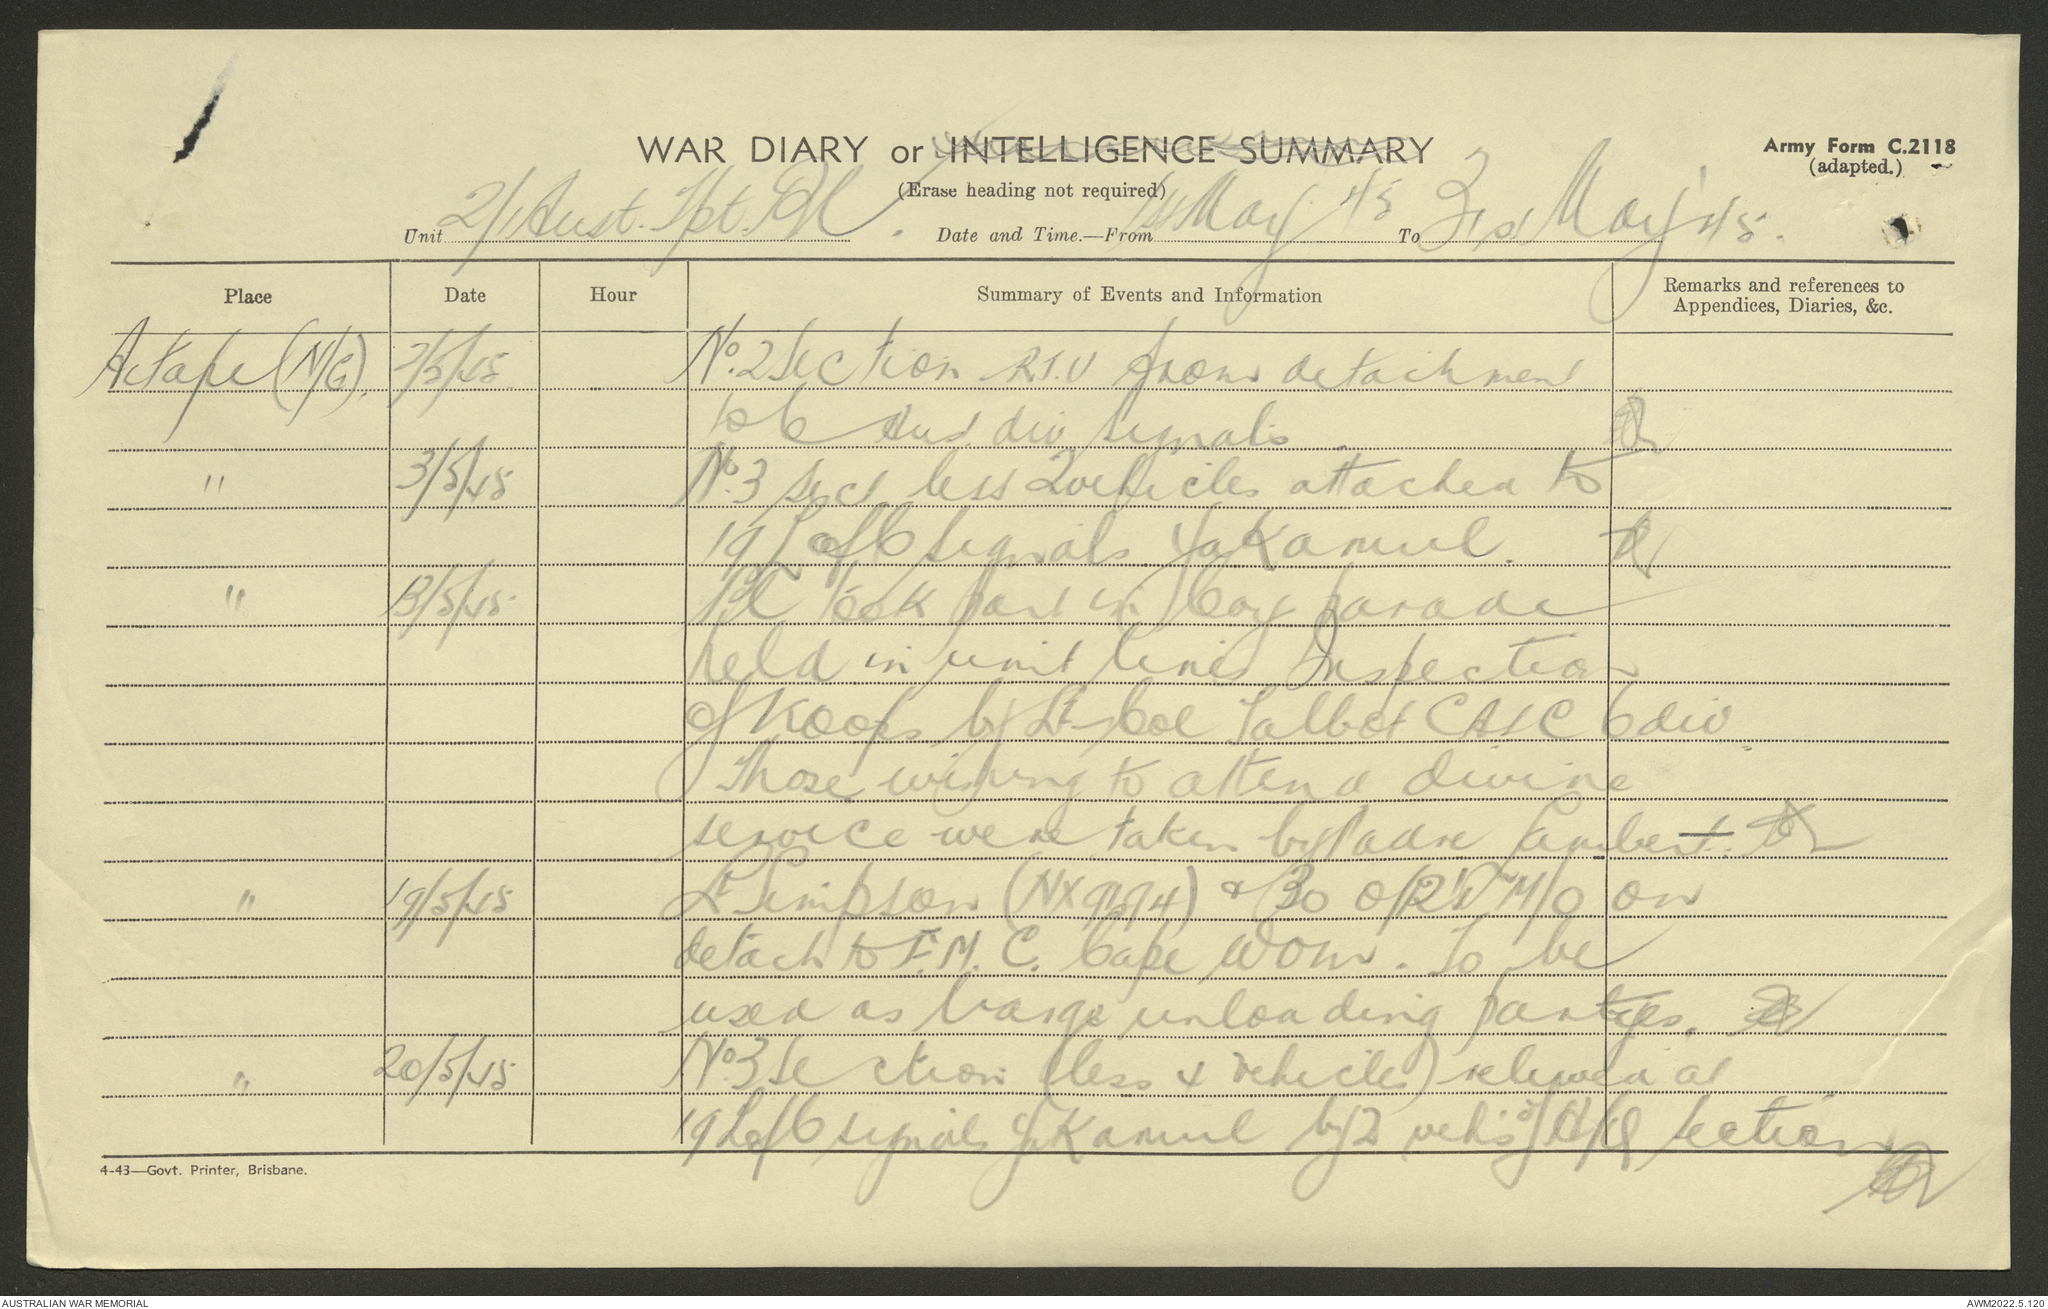 WAR DIARY or INTELLIGENCE SUMMARY
Army Form C.2118
(adapted.)
(Erase heading not required)
Unit 2/1 Aust. Tpt. Pl. Date and Time.—From 1st May '45 To 31st May '45.
Place Date Hour Summary of Events and Information Remarks and references to
Appendices, Diaries, &c.
Aitape (N/G). 2/5/45 No. 2 Section R.T.U from detachment
to 6 Aust div signals.
" 3/5/45 No. 3 sect. less 2 vehicles attached to
19 L of C signals Yakamul.
" 13/5/45 Pl took part in Coy parade
held in unit lines Inspection
of troops by Lt-Col Talbot CASC 6 div.
Those wishing to attend divine
service were taken by Padre Lambert.
" 19/5/45 Lt Simpson & 30 O/R's M/O on
detach to F.M.C. Cape Wom. To be
used as barge unloading parties.
" 20/5/45 No. 3 Section (less 4 vehicles) relieved at
19 L of C signals Yakamul by 2 vehs of H/Q section
4-43—Govt. Printer, Brisbane.
AUSTRALIAN WAR MEMORIAL AWM2022.5.120